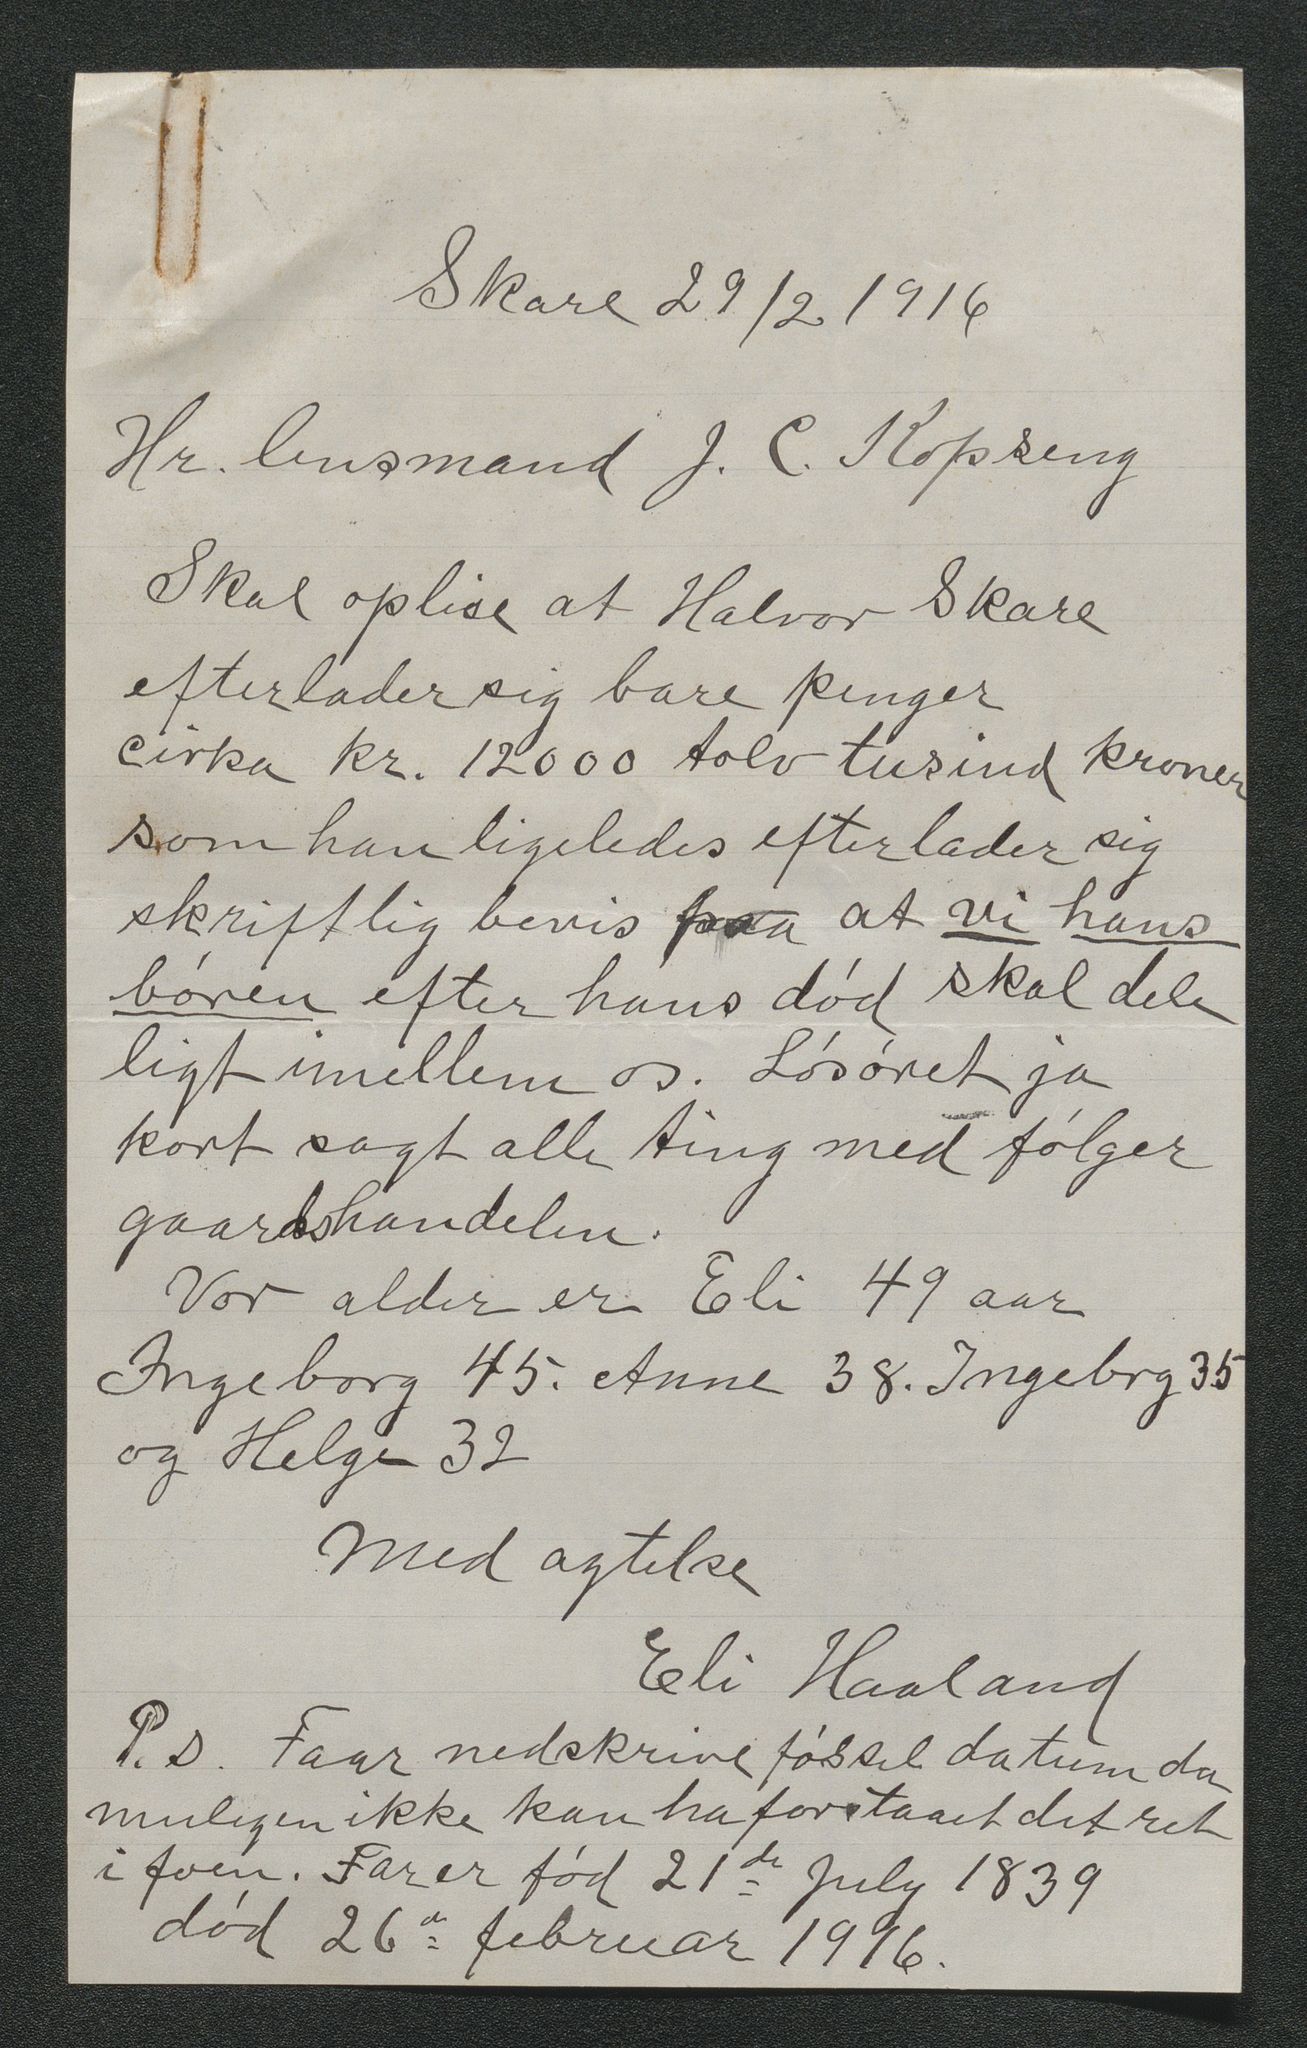 Skare 29/2 1916
Hr. lensmand J. C. Kopseng
Skal oplise at Halvor Skare
efterlader sig bare penger
cirka kr. 12000 tolv tusind kroner
som han ligeledes efterlader sig
skriftlig bevis paa at vi hans
bóren efter hans dód skal dele
ligt imellem os. Lósóret ja
kort sagt alle ting med fólger
gaardshandelen.
Vor alder er Eli 49 aar
Ingeborg 45. Anne 38. Ingebrg 35
og Helge 32
Med agtelse
Eli Haaland
P.s. Faar nedskrive fóssel datum da
muligen ikke kan ha forstaaet det ret
i foen. Far er fód 21de July 1839
dód 26de februar 1916.